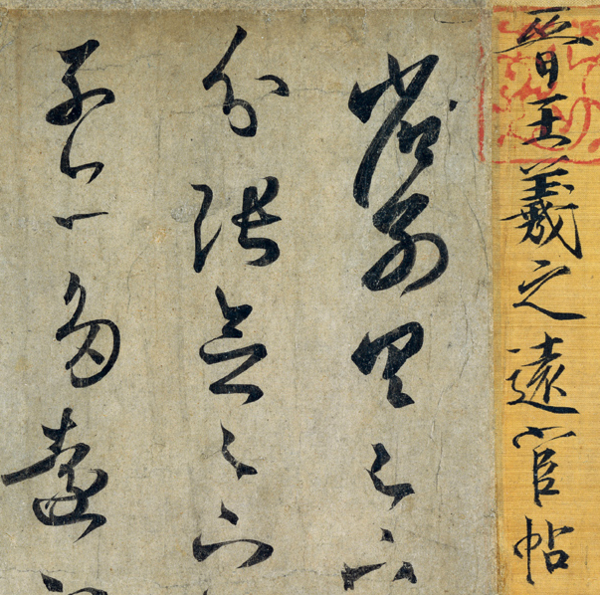 晉王羲之遠宦帖
省別具足下
分張念足下
子亦多遠